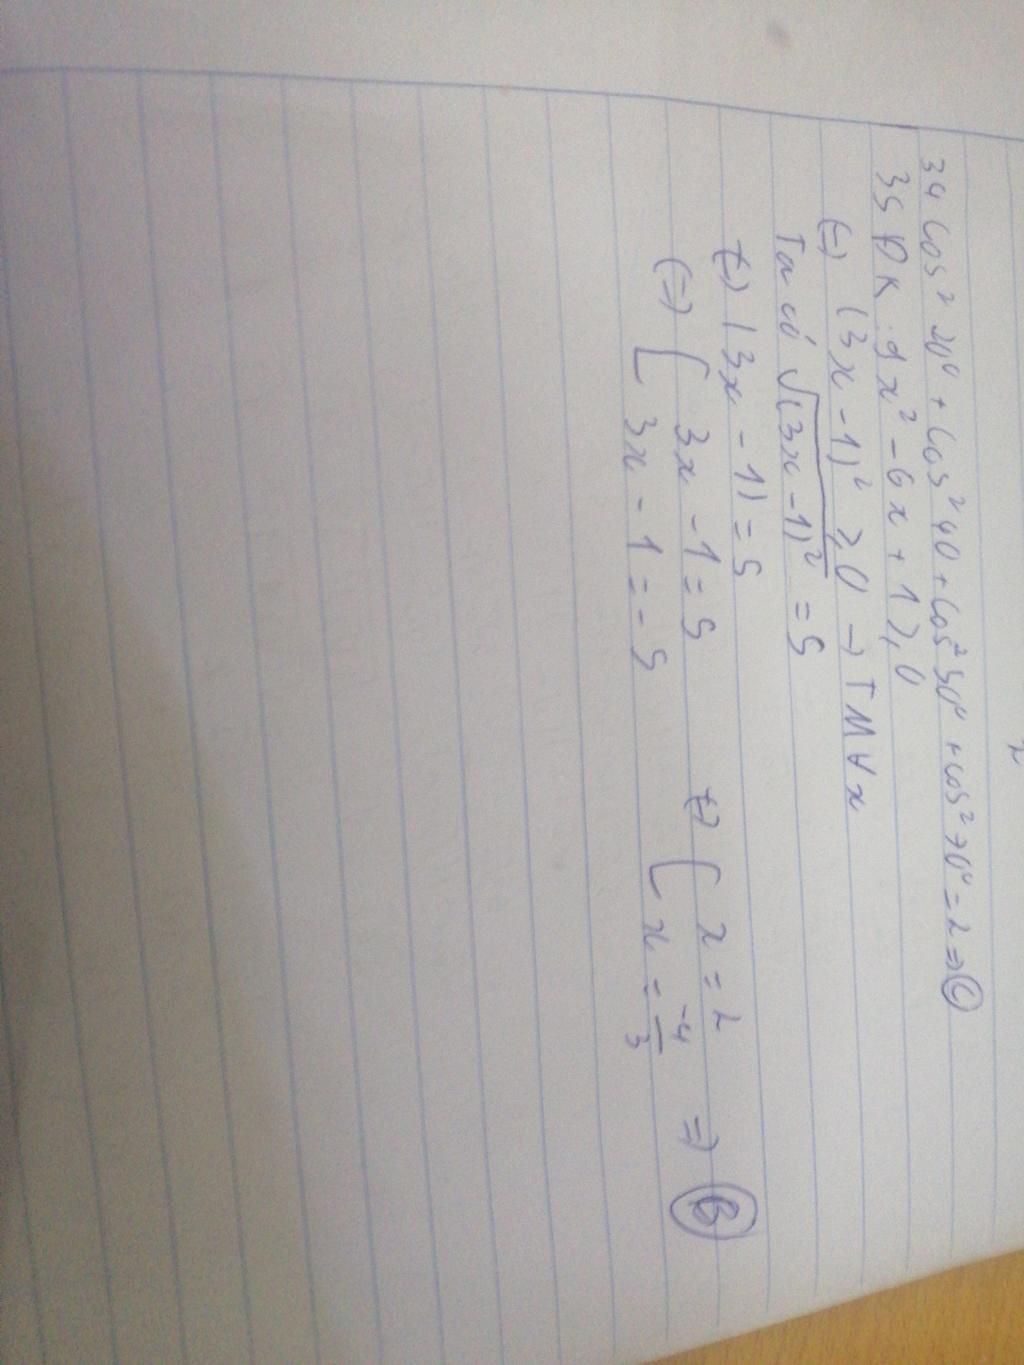 34 cos² 20° + cos² 40 + cos² 50° + cos² 70° = 2 => C
35 ĐK : 9x² - 6x + 1 ≥ 0
(=) (3x - 1)² ≥ 0 → TM ∀x
Ta có √(3x - 1)² = 5
(=) |3x - 1| = 5
(=) [ 3x - 1 = 5 (=) [ x = 2
3x - 1 = -5 x = -4/3 => B